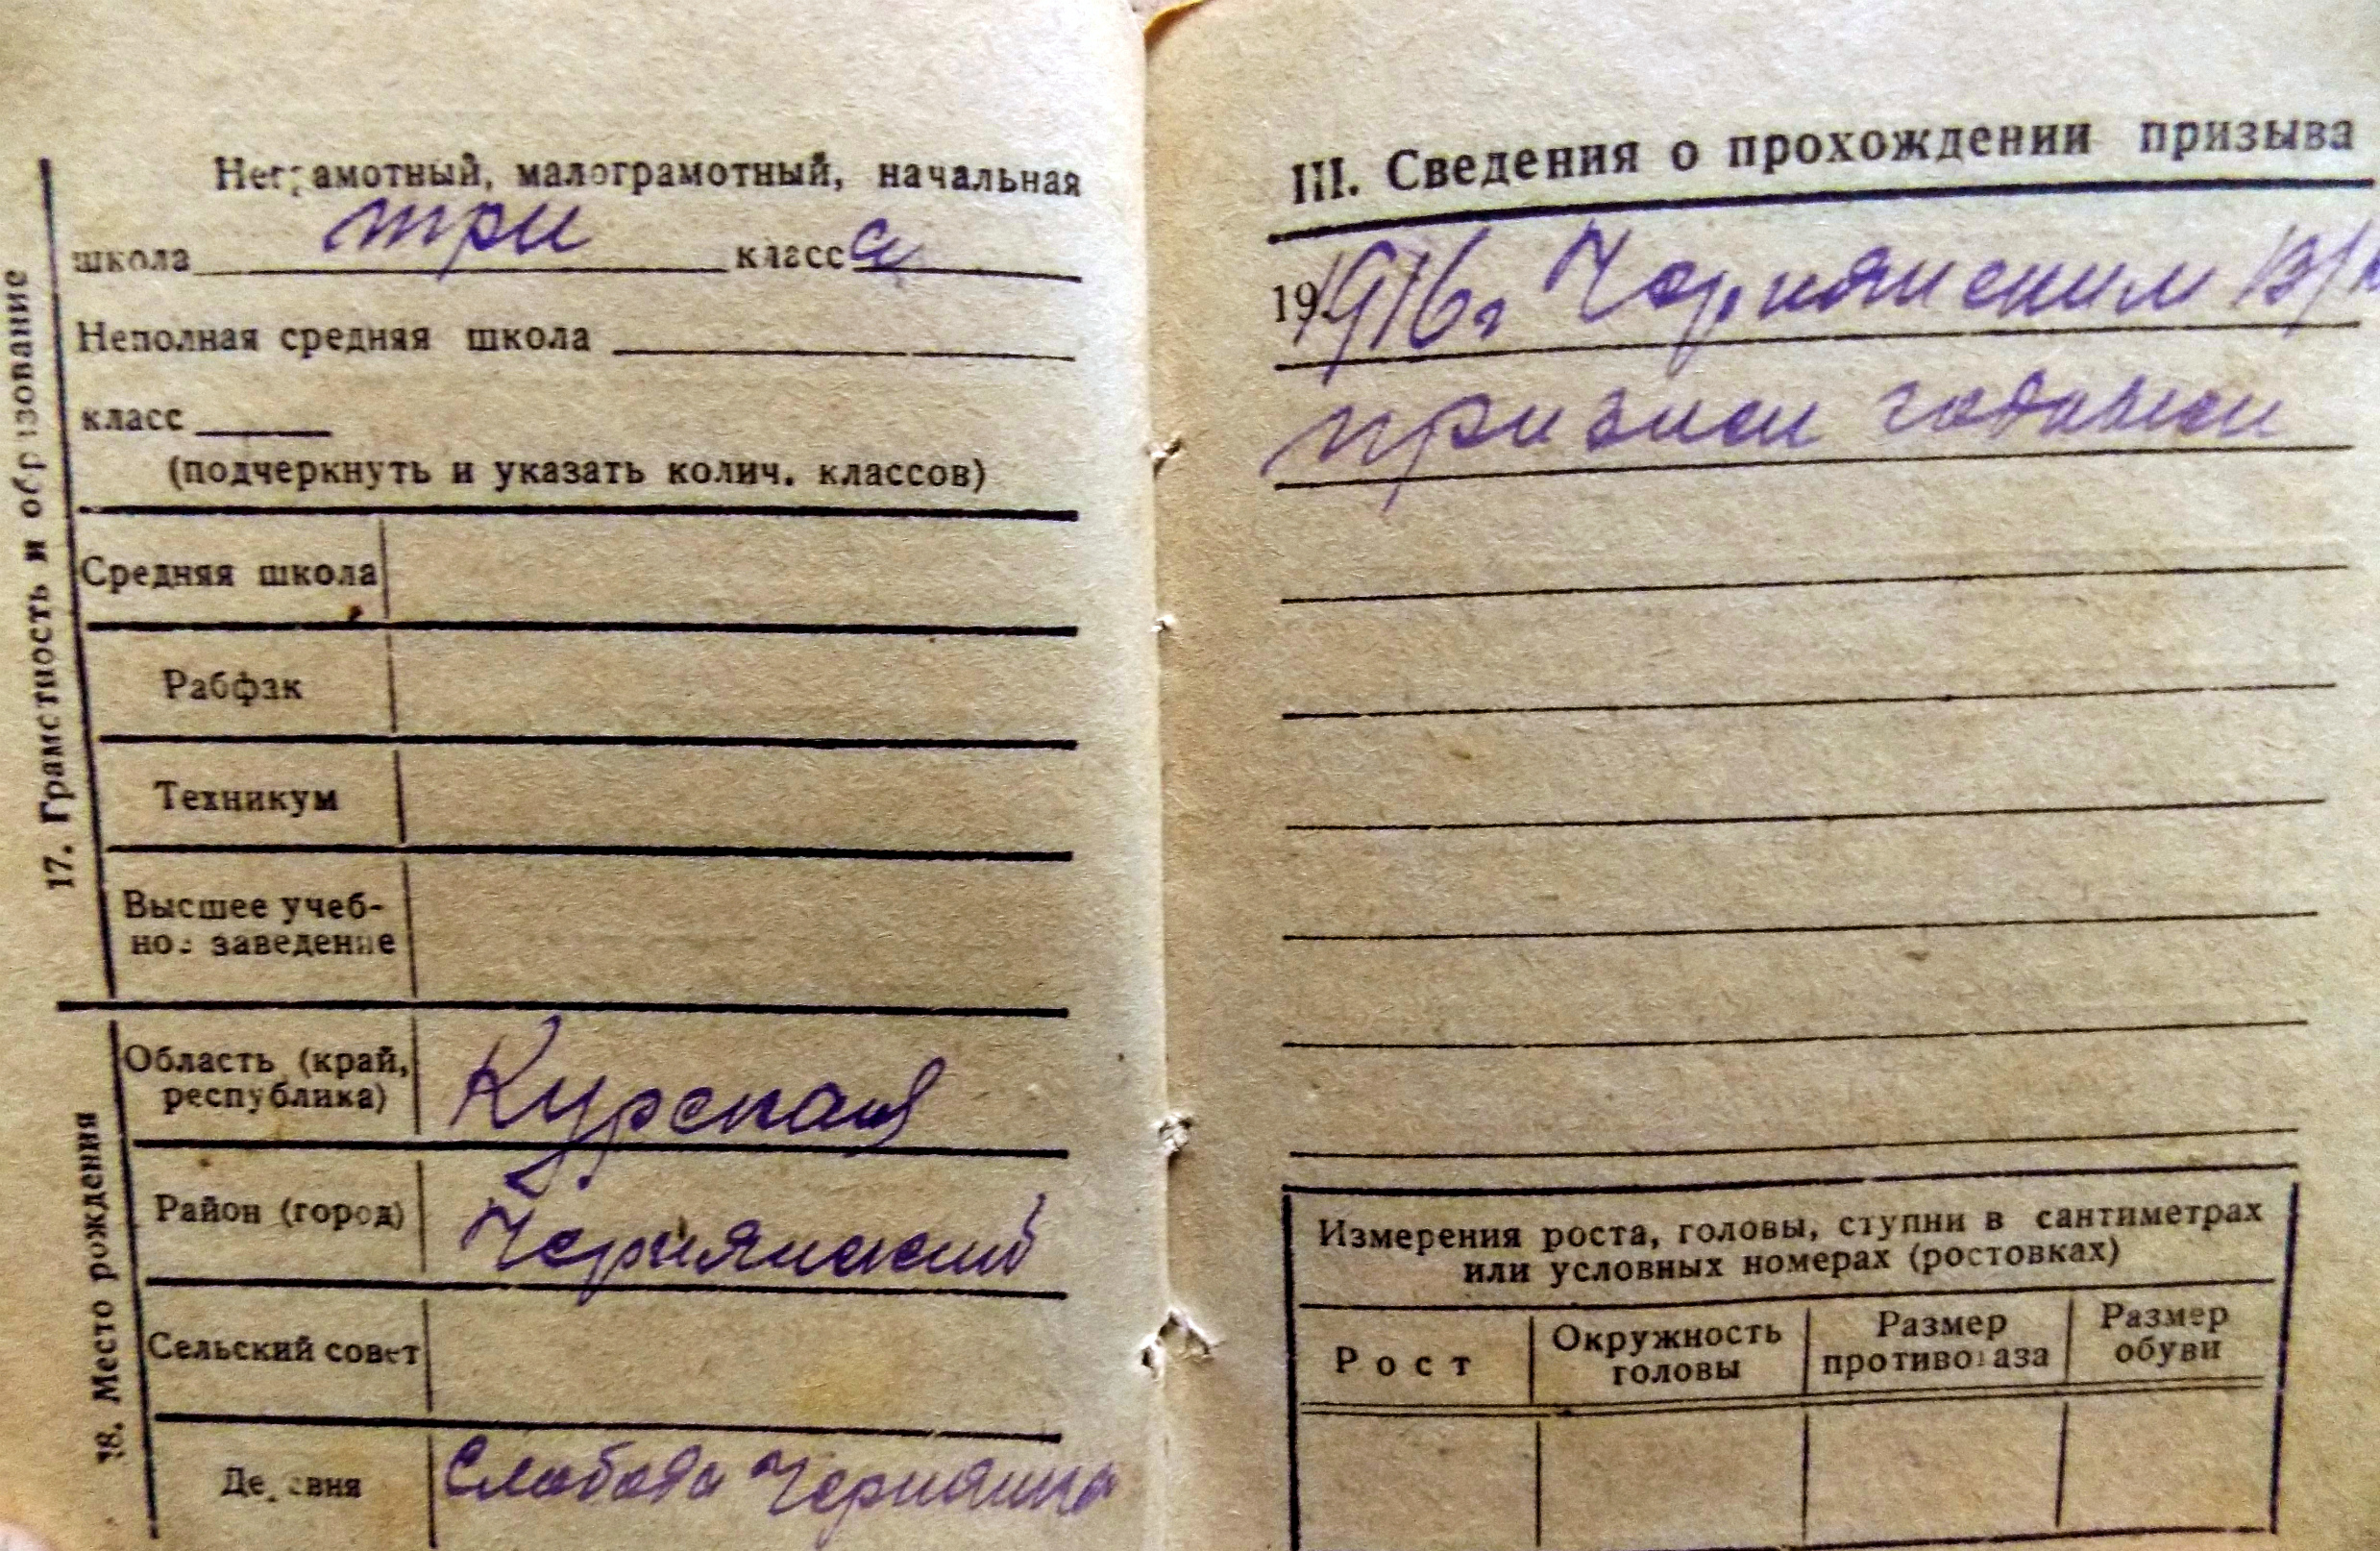 17. Грамотность и образование
Неграмотный, малограмотный, начальная
школа три класса
Неполная средняя школа
класс
(подчеркнуть и указать колич. классов)
Средняя школа
Рабфак
Техникум
Высшее учеб-
ное заведение
18. Место рождения
Область (край,
республика) Курская
Район (город) Чернянский
Сельский совет
Деревня Слобода Чернянка
III. Сведения о прохождении призыва
19 1916г Чернянским
признан годным
Измерения роста, головы, ступни в сантиметрах
или условных номерах (ростовках)
Рост
Окружность
головы
Размер
противогаза
Размер
обуви